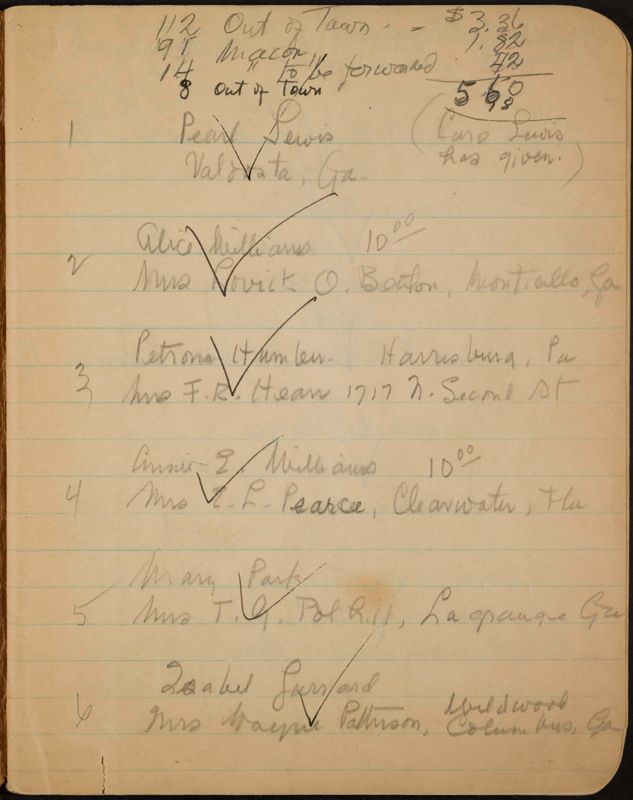 112 Out of Town. - $3.36
91 Macon 1.82
14 " to be forwarded 42
8 out of Town
5 60
98
1 Pearl Lewis (Caro Lewis
Valdosta, Ga. has given.)
Alice Williams 10.00
2 Mrs Lovick O. Benton, Monticello, Ga
Petrona Humber. Harrisburg, Pa
3 Mrs F. R. Hearn 1717 N. Second St
Annie E. Williams 10.00
4 Mrs L. Pearce, Clearwater, Fla
Mary Park
5 Mrs T. G. Polhill, Lagrange Ga
Isabel Garrard
6 Mrs Wayne Patterson, Wildwood
Columbus, Ga